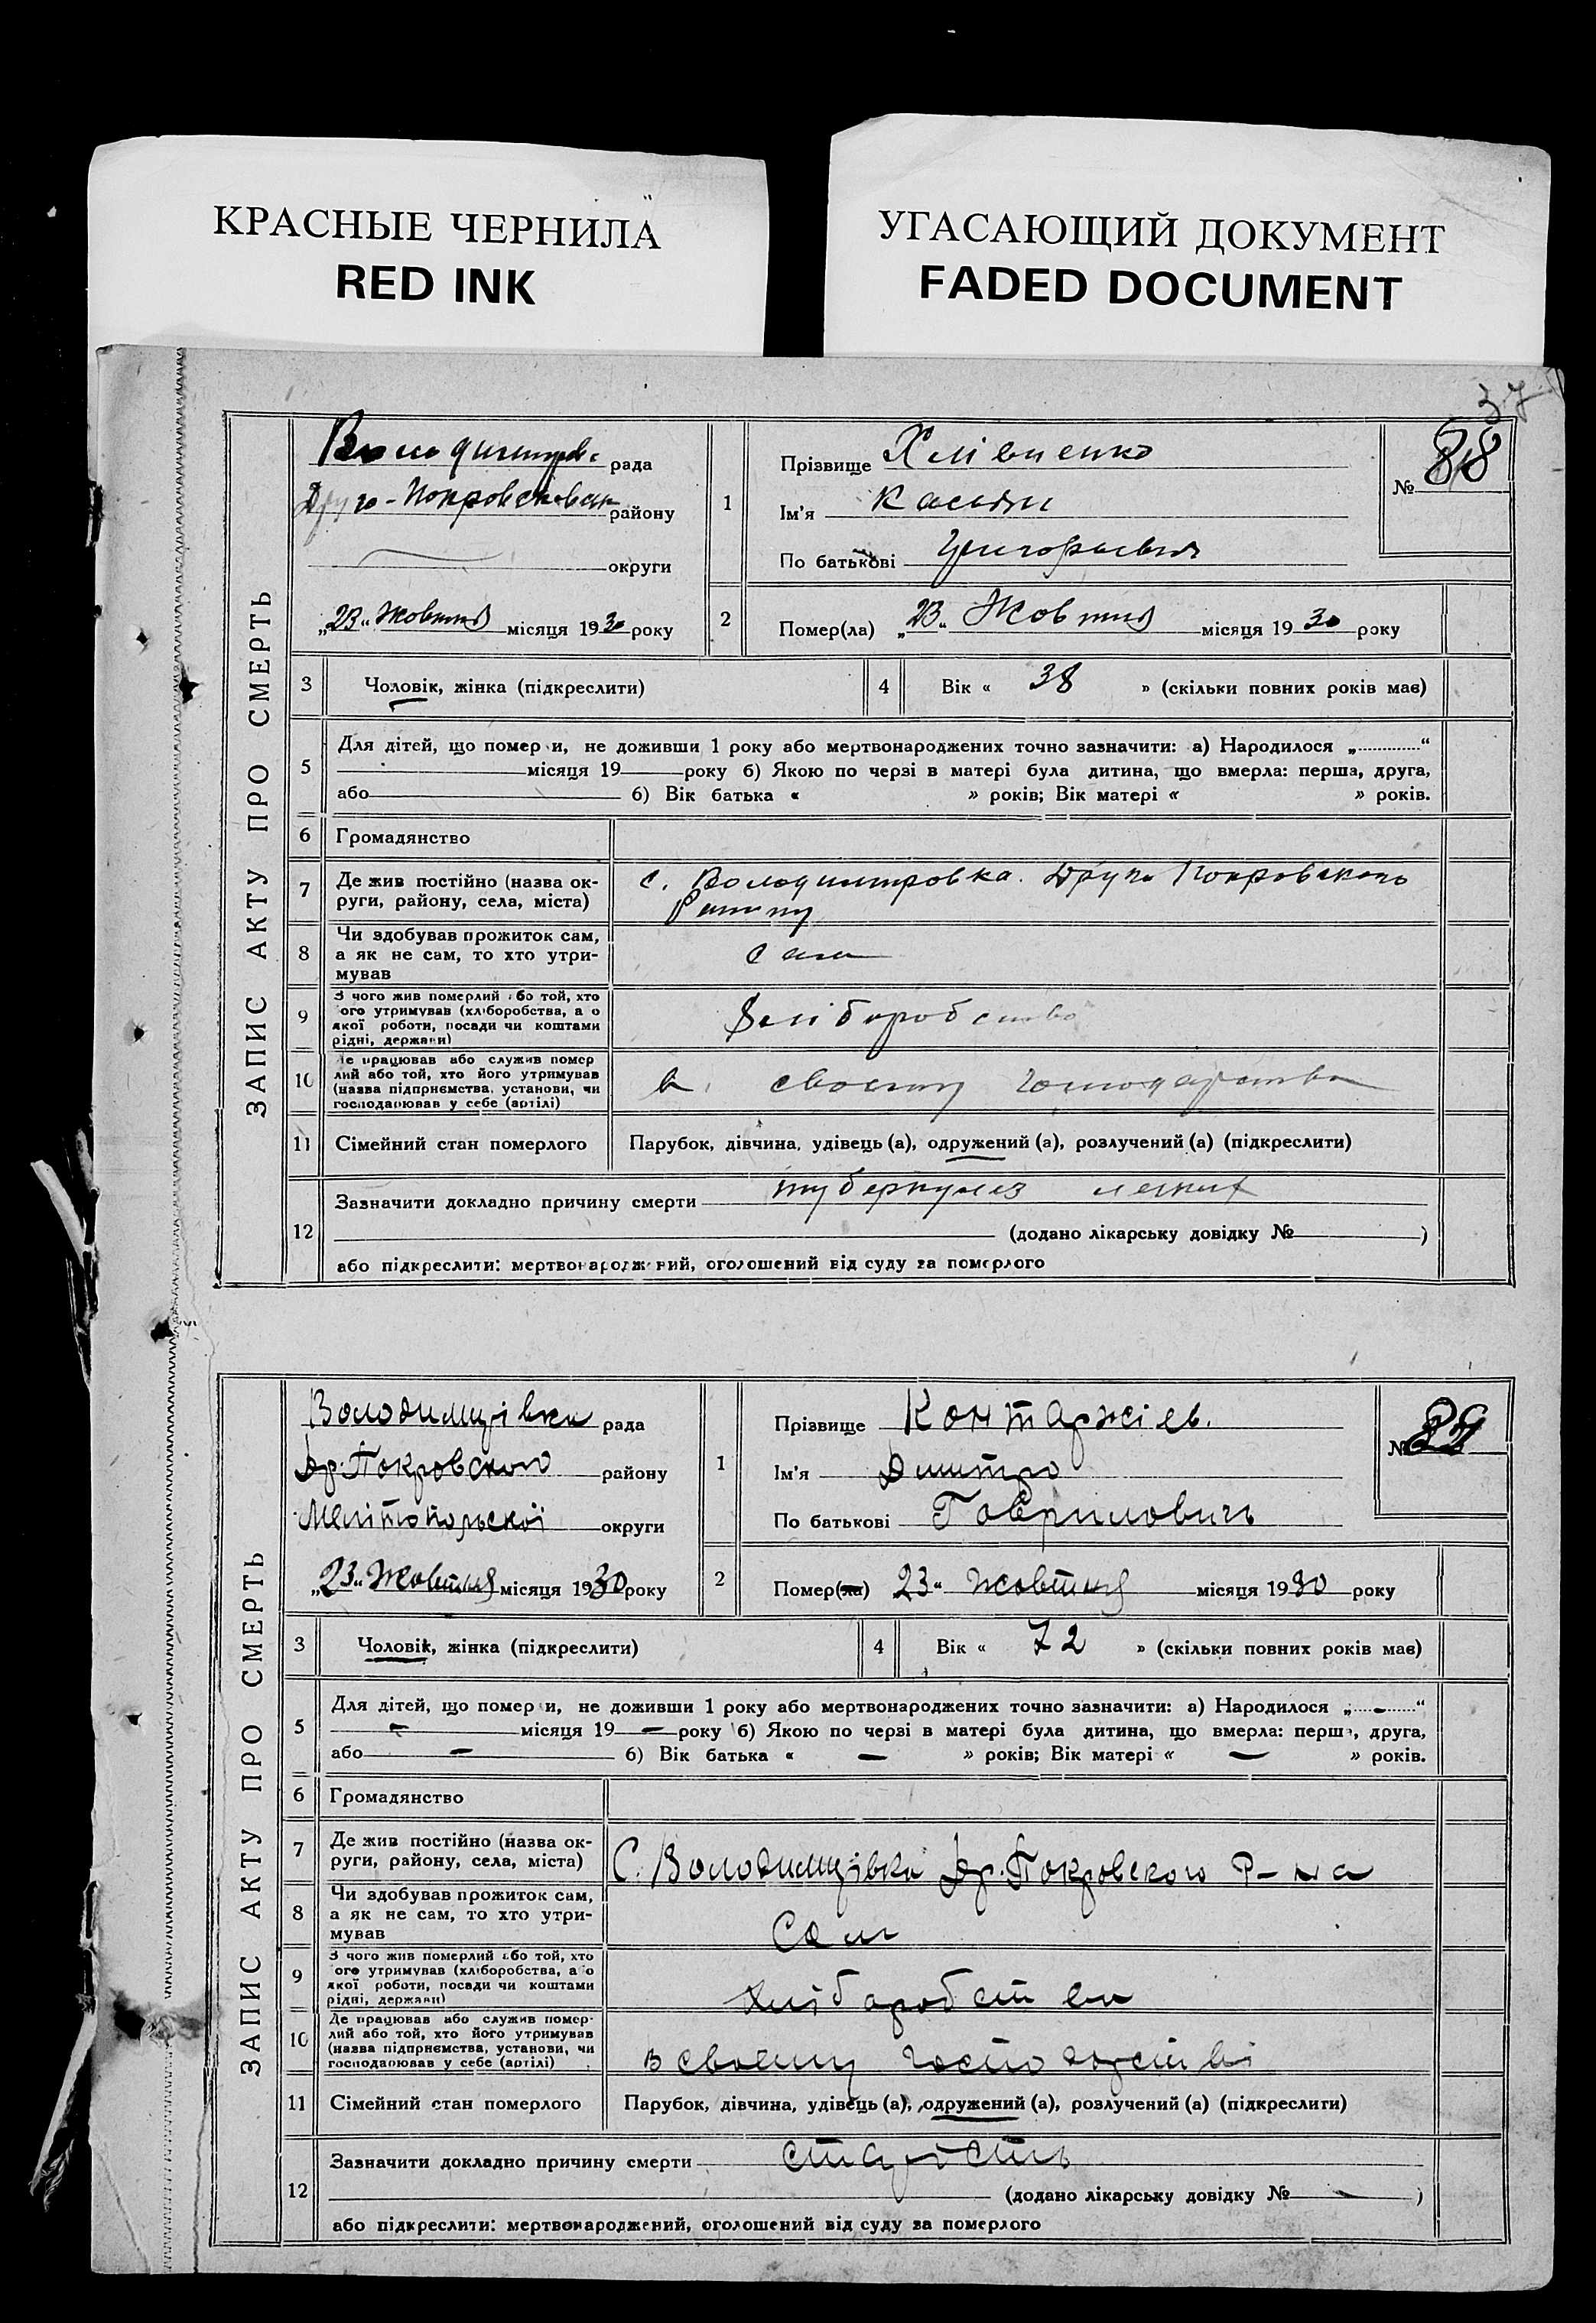 КРАСНЫЕ ЧЕРНИЛА
RED INK
УГАСАЮЩИЙ ДОКУМЕНТ
FADED DOCUMENT
37
ЗАПИС АКТУ ПРО СМЕРТЬ
рада
Друго-Покровський району
округи
„23“ Жовтня місяця 1930 року
1
Прізвище Хлівненко
Ім'я Касьян
По батькові Григорьевич
№ 88
2
Помер(ла) „23“ Жовтня місяця 1930 року
3
Чоловік, жінка (підкреслити)
4
Вік « 38 » (скільки повних років має)
5
Для дітей, що померли, не доживши 1 року або мертвонароджених точно зазначити: а) Народилося „ “
місяця 19 року б) Якою по черзі в матері була дитина, що вмерла: перша, друга,
або б) Вік батька « » років; Вік матері « » років.
6
Громадянство
7
Де жив постійно (назва округи, району, села, міста)
с. Володимировка Друго Покровського
Району
8
Чи здобував прожиток сам,
а як не сам, то хто утри-
мував
сам
9
З чого жив померлий або той, хто
його утримував (хліборобства, а о
якої роботи, посади чи коштами
рідні, держави)
Хліборобство
10
Де працював або служив помер
лий або той, хто його утримував
(назва підприємства, установи, чи
господарював у себе (артілі)
в своему господарстве
11
Сімейний стан померлого
Парубок, дівчина, удівець (а), одружений (а), розлучений (а) (підкреслити)
12
Зазначити докладно причину смерти туберкулез легких
(додано лікарську довідку № )
або підкреслити: мертвонароджений, оголошений від суду за померлого
ЗАПИС АКТУ ПРО СМЕРТЬ
Володимирівка рада
Др. Покровского району
Мелітопольской округи
„23“ Жовтня місяця 1930 року
1
Прізвище Контаржієв.
Ім'я Дмитро
По батькові Гаврилович
№ 89
2
Помер(ла) 23“ Жовтня місяця 1930 року
3
Чоловік, жінка (підкреслити)
4
Вік « 72 » (скільки повних років має)
5
Для дітей, що померли, не доживши 1 року або мертвонароджених точно зазначити: а) Народилося „ - “
- місяця 19 - року б) Якою по черзі в матері була дитина, що вмерла: перша, друга,
або - б) Вік батька « - » років; Вік матері « - » років.
6
Громадянство
7
Де жив постійно (назва ок-
руги, району, села, міста)
С. Володимирівка Др. Покровского Р-на
8
Чи здобував прожиток сам,
а як не сам, то хто утри-
мував
Сам
9
З чого жив померлий або той, хто
його утримував (хліборобства, а о
якої роботи, посади чи коштами
рідні, держави)
Хліборобства
10
Де працював або служив помер-
лий або той, хто його утримував
(назва підприємства, установи, чи
господарював у себе (артілі)
в своему господарстві
11
Сімейний стан померлого
Парубок, дівчина, удівець (а), одружений (а), розлучений (а) (підкреслити)
12
Зазначити докладно причину смерти старость
(додано лікарську довідку № - )
або підкреслити: мертвонароджений, оголошений від суду за померлого